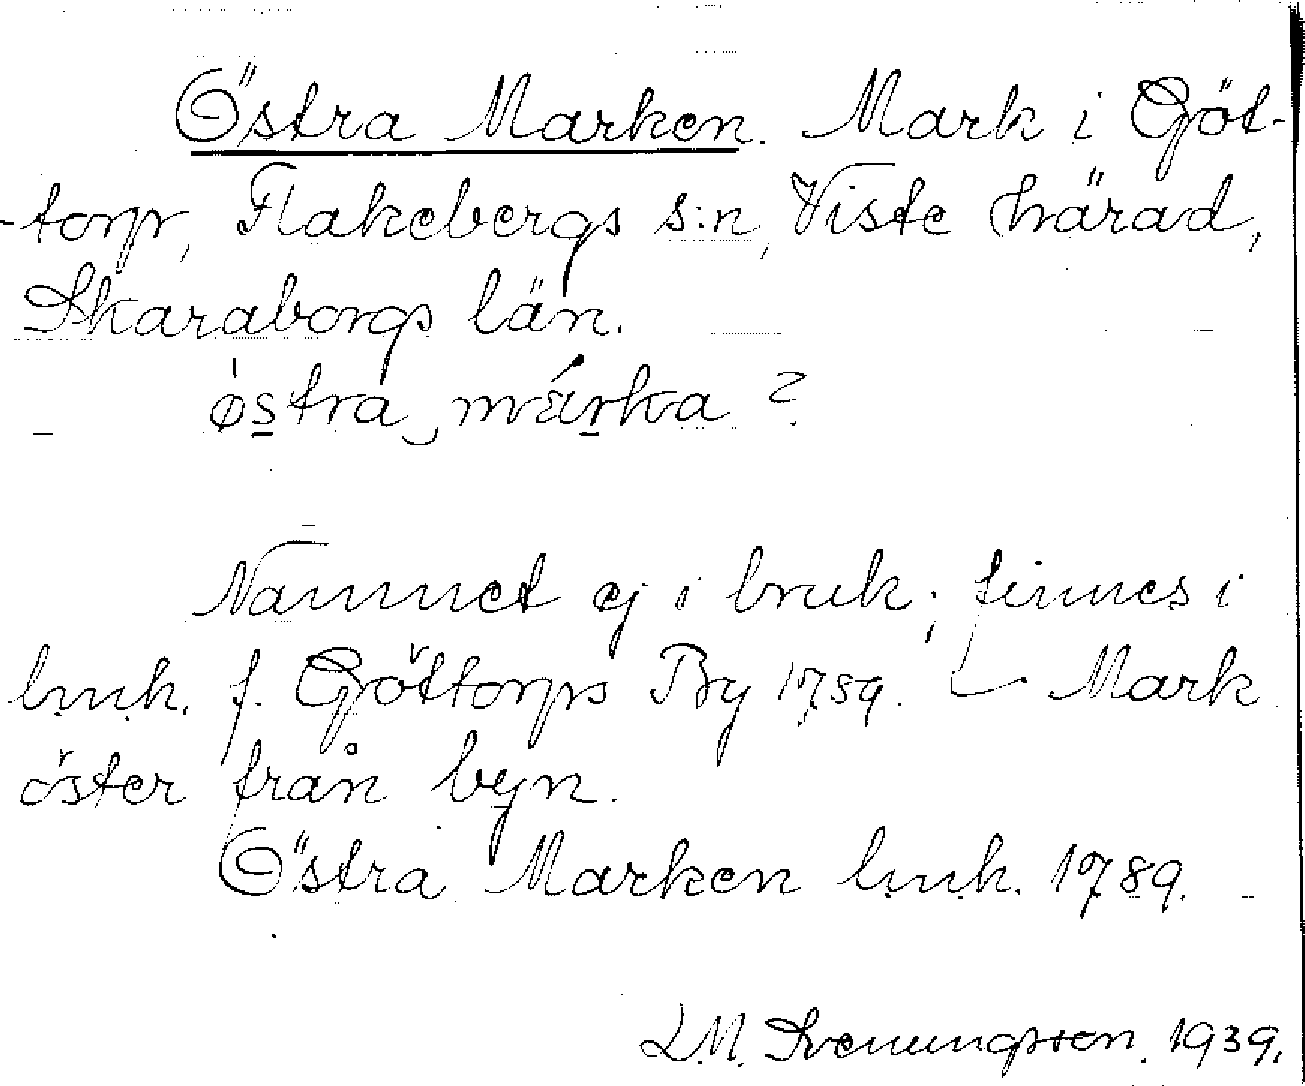 Östra Marken. Mark i Göt-
-torp, Flakebergs s:n, Viste härad,
Skaraborgs län.
østra märka ?
Namnet ej i bruk; finnes i
lmk. f. Göttorps By 1789. Mark
öster från byn.
Östra Marken lmk. 1789.
L.M. Svenungsson. 1939.